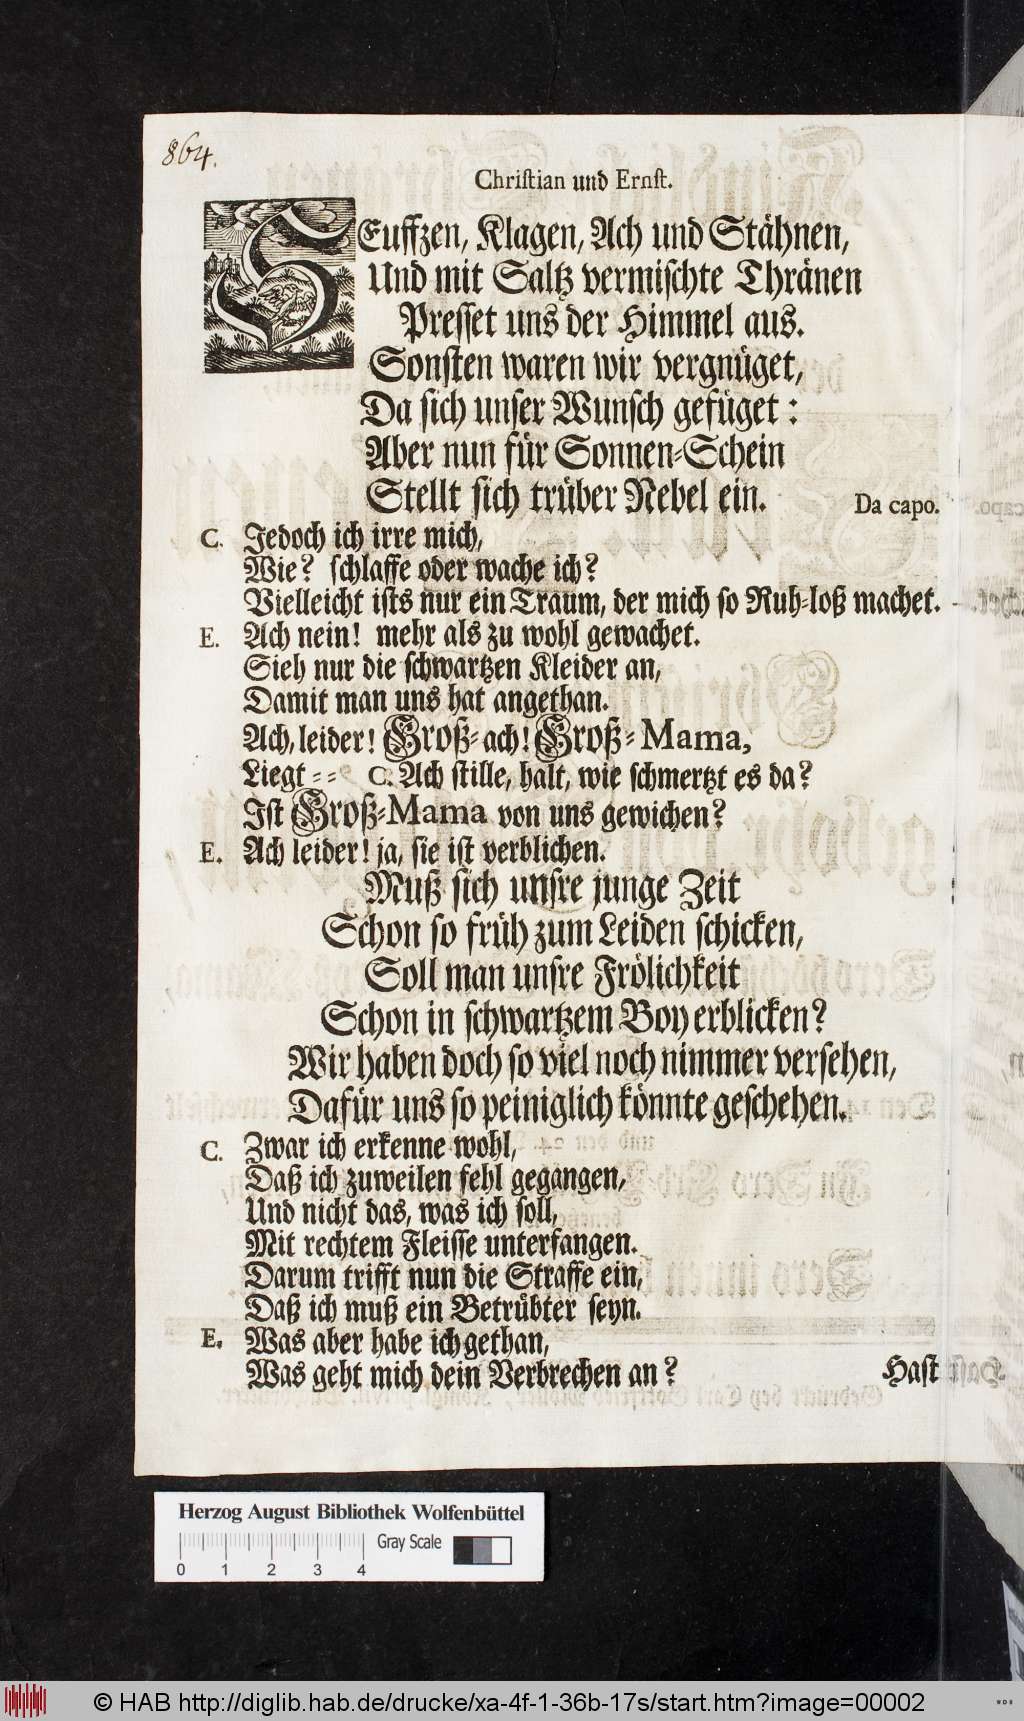 864.
Christian und Ernst.
SEuffzen, Klagen, Ach und Stähnen,
Und mit Saltz vermischte Thränen
Presset uns der Himmel aus.
Sonsten waren wir vergnüget,
Da sich unser Wunsch gefüget:
Aber nun für Sonnen-Schein
Stellt sich trüber Nebel ein. Da capo.
C. Jedoch ich irre mich,
Wie? schlaffe oder wache ich?
Vielleicht ists nur ein Traum, der mich so Ruh-loß machet.
E. Ach nein! mehr als zu wohl gewachet.
Sieh nur die schwartzen Kleider an,
Damit man uns hat angethan.
Ach, leider! Groß- ach! Groß-Mama,
Liegt - - C. Ach stille, halt, wie schmertzt es da?
Ist Groß-Mama von uns gewichen?
E. Ach leider! ja, sie ist verblichen.
Muß sich unsre junge Zeit
Schon so früh zum Leiden schicken,
Soll man unsre Frölichkeit
Schon in schwartzem Boy erblicken?
Wir haben doch so viel noch nimmer versehen,
Dafür uns so peiniglich könnte geschehen.
C. Zwar ich erkenne wohl,
Daß ich zuweilen fehl gegangen,
Und nicht das, was ich soll,
Mit rechtem Fleisse unterfangen.
Darum trifft nun die Straffe ein,
Daß ich muß ein Betrübter seyn.
E. Was aber habe ich gethan,
Was geht mich dein Verbrechen an?
Hast
Herzog August Bibliothek Wolfenbüttel
Gray Scale
0 1 2 3 4
© HAB http://diglib.hab.de/drucke/xa-4f-1-36b-17s/start.htm?image=00002